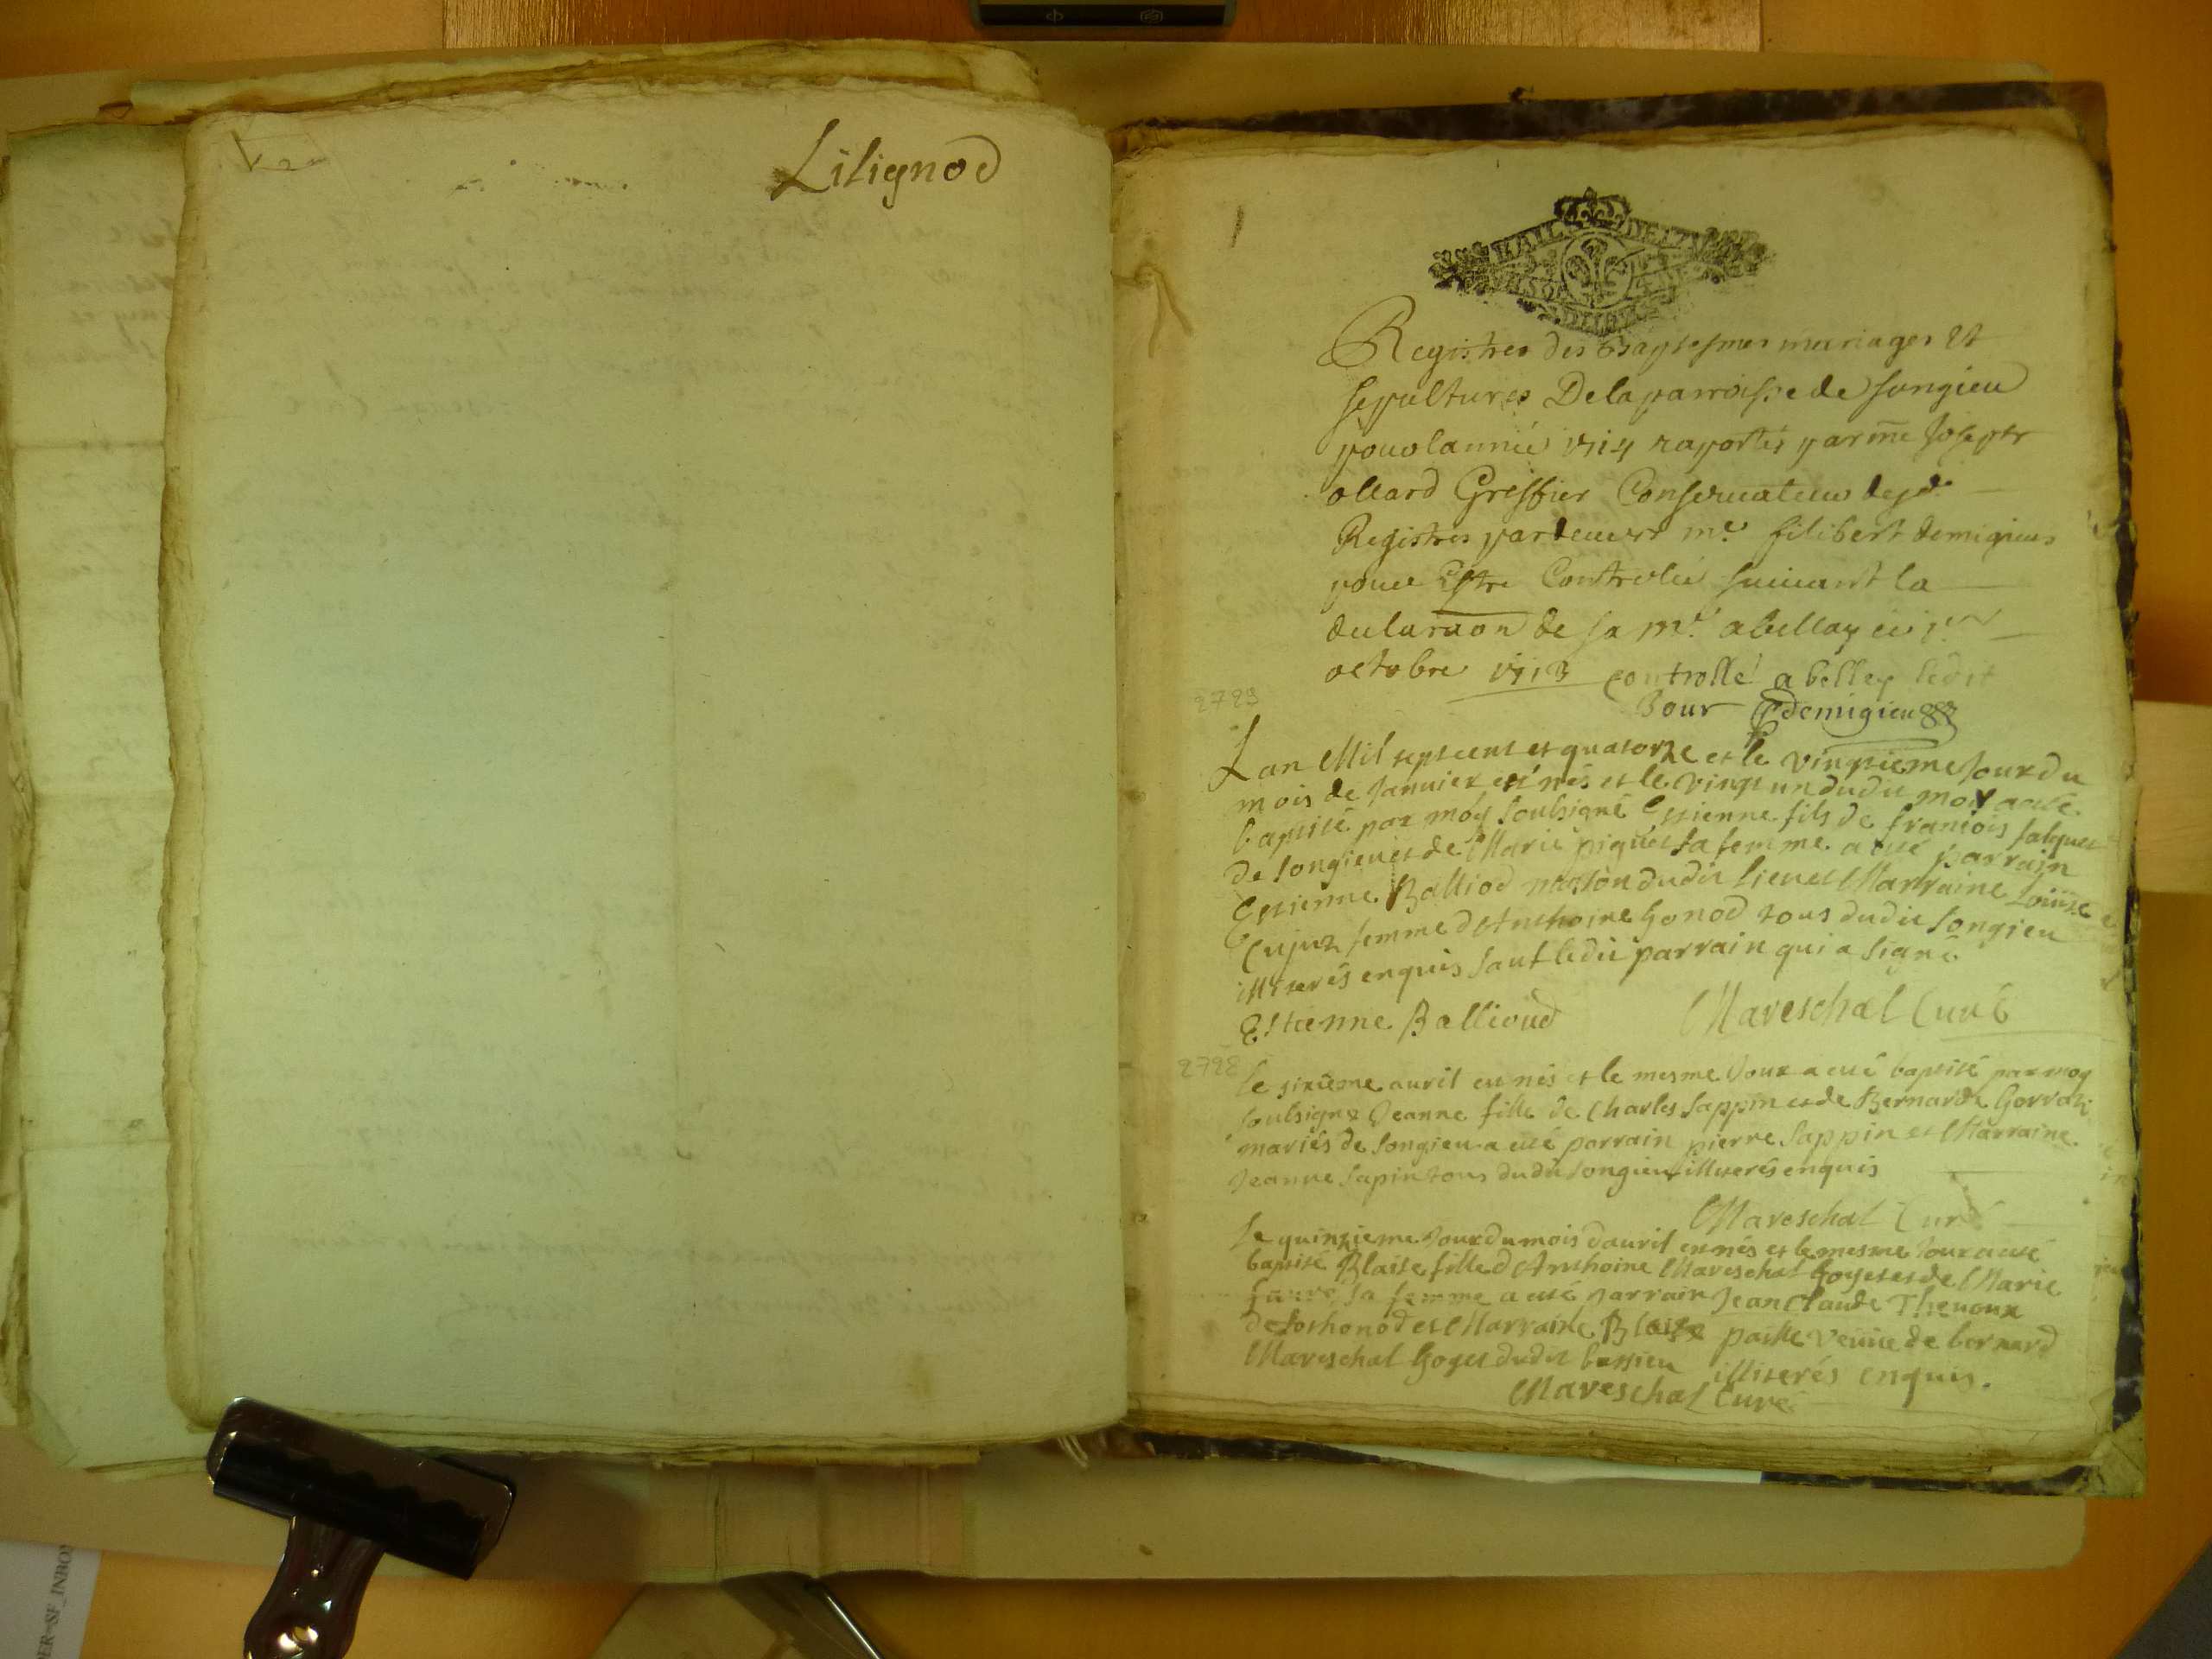 Lilignod
BAIL DE
Registres des Baptesmes mariages Et
sepultures De la parroisse de songieu
pour lannée 1714 raportés par me Joseph
ollard Greffier Conservateur desd.
Registres pardevert me. filibert demigieus
pour Estre Controlés suivant la
declaraon de sa mté. a bellay ce 1er
octobre 1713 controllé a belley ledit
Jour demigieu
2723
Lan Mil sept cent et quatorze et le vingtieme Jour du
mois de Janvier est nés et le vingt un dudit mois a esté
baptisé par moy soubsigné Estienne fils de francois
de songieu et de Marie piquet sa femme a esté parrain
Estienne Balliod dudit lieu et Marraine Louise
Cujuz femme dAnthoine Gonod tous dudit songieu
illiterés enquis sauf ledit parrain qui a signé
Estienne Ballioud Mareschal Curé
2728
le sixieme avril est nés et le mesme Jour a esté baptisé par moy
soubsigné Jeanne fille de Charles sappin et de Bernarde
mariés de songieu a esté parrain pierre sappin et Marraine
Jeanne sapin tous dudit songieu illiterés enquis
Mareschal Curé
le quinzieme Jour du mois davril est nés et le mesme Jour a esté
baptisé Blaise fille dAnthoine Mareschal Goyet et de Marie
sa femme a esté parrain Jean Claude Thevoux
de et Marraine Blaise veuve de bernard
Mareschal Goyet dudit bassieu illiterés enquis.
Mareschal Curé